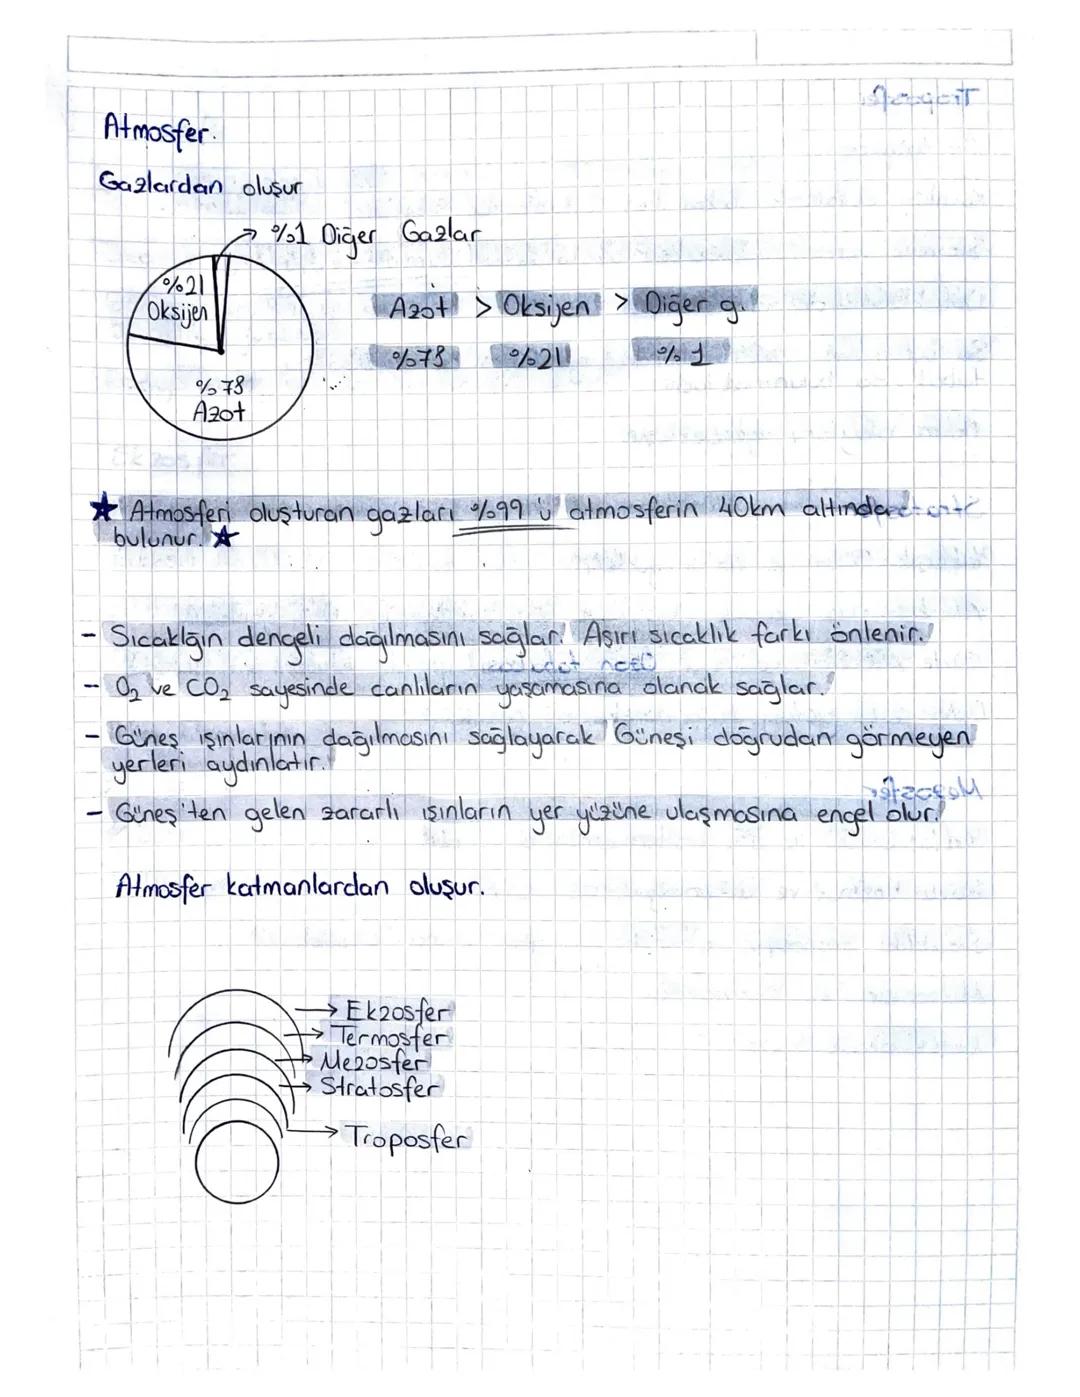 Atmosfer.
Gazlardan oluşur
%1 Diğer Gazlar
%21
Oksijen
%78
Azot
Azot > Oksijen > Diğer g.
%78 %21 %1
★ Atmosferi oluşturan gazları %99'ü atmosferin 40km altında
bulunur. ★
- Sıcaklğın dengeli dağılmasını sağlar. Aşırı sıcaklık farkı önlenir.
- O₂ ve CO₂ sayesinde canlıların yaşamasına olanak sağlar.
- Güneş ışınlarının dağılmasını sağlayarak Güneşi doğrudan görmeyen
yerleri aydınlatır.
- Güneş'ten gelen zararlı ışınların yer yüzüne ulaşmasına engel olur.
Atmosfer katmanlardan oluşur.
Ekzosfer
Termosfer
Mezosfer
Stratosfer
Troposfer